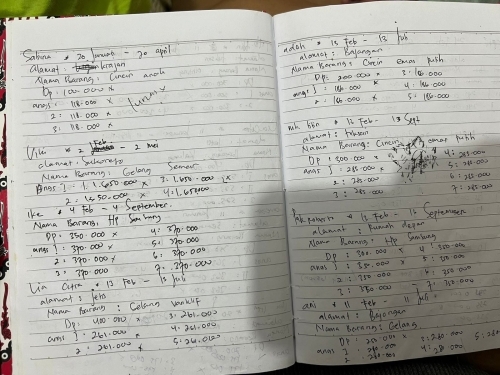 Sabrina * 20 januari - 20 april
alamat : krajan
Nama Barang : Cincin anak
Dp : 100.000 x
angs 1 : 118.000 x
2 : 118.000 x
3 : 118.000 x
2 Feb - 2 mei
alamat :
Nama Barang : Gelang
Angs 1 : 1.650.000 x 3 : 1.650.000
2 : 1.650.000 x 4 : 1.650.000
Ike * 4 Feb - 4 September
Nama Barang, HP Samsung
Dp : 350.000 x 4 : 370.000
angs 1 : 370.000 x 5 : 370.000
2 : 370.000 x 6 : 370.000
370.000 7 : 370.000
Lia Citra * 13 Feb - 13 juli
alamat :
Nama Barang : Gelang
Dp : 400.000 x 3 : 261.000
angs 1 : 261.000 x 4 : 261.000
2 : 261.000 x 5 : 261.000
* 13 Feb - 13 juli
alamat :
Nama Barang : Cincin emas putih
Dp : 200.000 x 3 : 186.000
angs 1 : 186.000 x 4 : 186.000
2 : 186.000 x 5 : 186.000
* 13 Feb - 13 Sept
alamat :
Nama Barang : Cincin emas putih
Dp : 200.000 x 4 : 285.000
angs 1 : 285.000 x 5 : 285.000
2 : 285.000 6 : 285.000
3 : 285.000 7 : 285.000
Pak * 13 Feb - 13 September
alamat : Rumah depan
Nama Barang : HP Samsung
Dp : 300.000 x 4 : 350.000
angs 1 : 350.000 x 5 : 350.000
2 : 350.000 6 : 350.000
3 : 350.000 7 : 350.000
ani * 11 Feb - 11 juli
alamat :
Nama Barang : Gelang
Dp : 250.000 x 3 : 280.000
angs 1 : 280.000 4 : 280.000
2 : 280.000